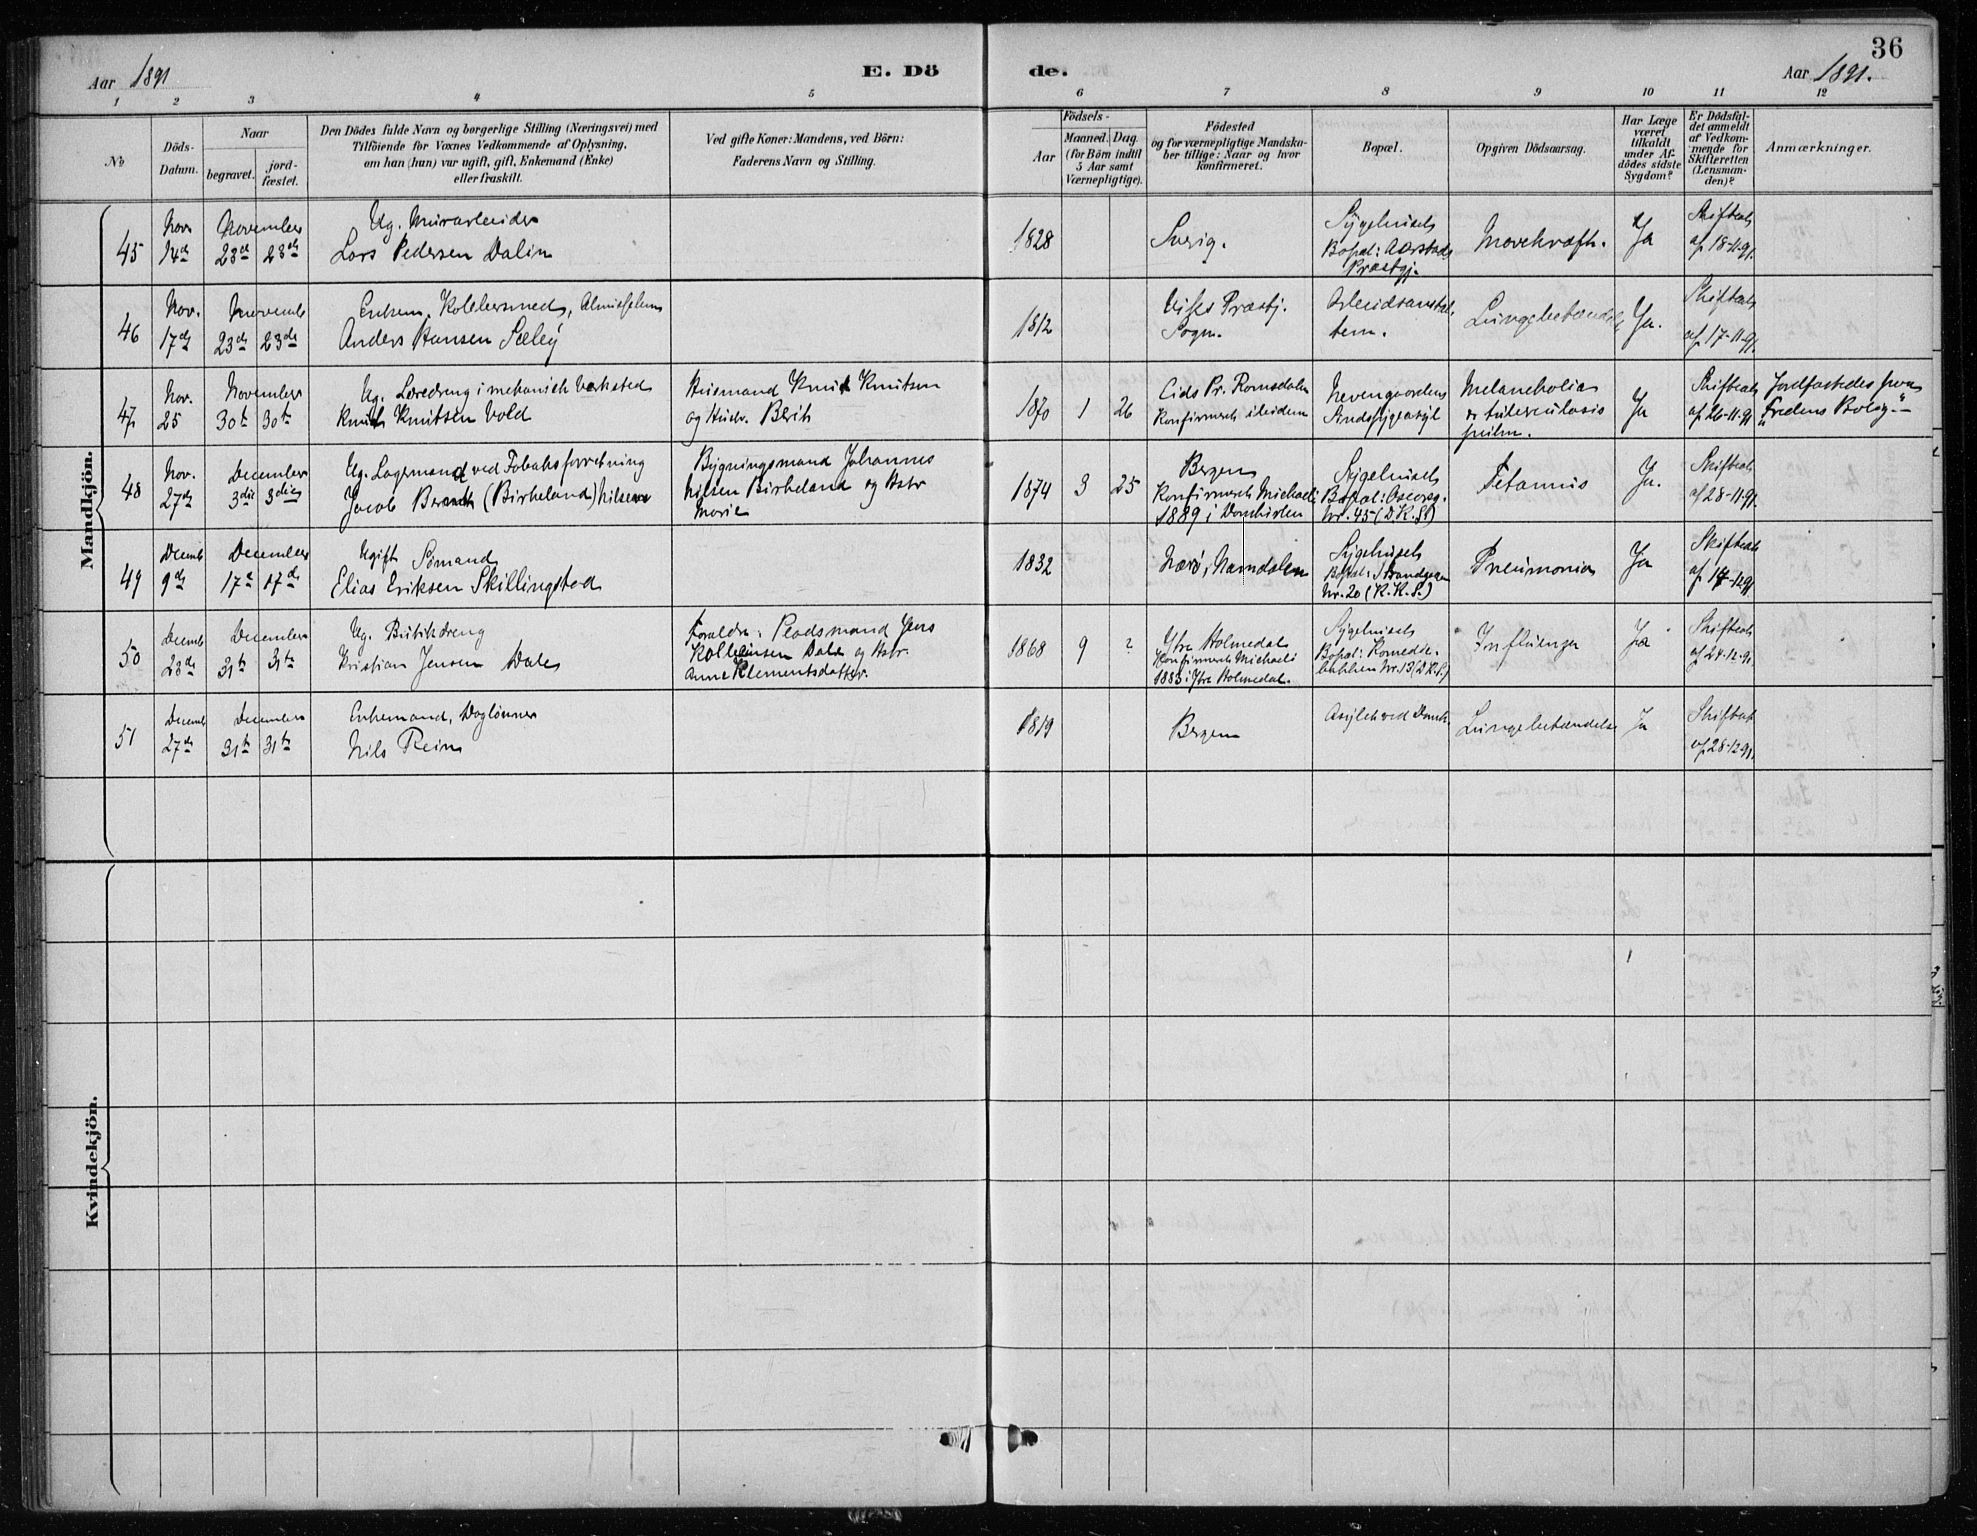 36
Aar 1891
E. Dö
de.
Aar 1891.
1 2 3 4 5 6 7 8 9 10 11 12
No
Döds-
Datum.
Naar
begravet.
jord-
fæstet.
Den Dödes fulde Navn og borgerlige Stilling (Næringsvei) med
Tilföiende for Voxnes Vedkommende af Oplysning,
om han (hun) var ugift, gift, Enkemand (Enke)
eller fraskilt.
Ved gifte Koner: Mandens, ved Börn:
Faderens Navn og Stilling.
Födsels-
Aar
Maaned. Dag.
(for Börn indtil
5 Aar samt
Værnepligtige).
Födested
og for værnepligtige Mandska-
ber tillige: Naar og hvor
konfirmeret.
Bopæl.
Opgiven Dödsaarsag.
Har Læge
været
tilkaldt
under Af-
dödes sidste
Sygdom?
Er Dödsfal-
det anmeldt
af Vedkom-
mende for
Skifteretten
(Lensman-
den)?
Anmærkninger.
Mandkjön.
45
Nov
14de
November
23de 23de
Ug. Murarbeider
Lars Pedersen Dalin
1828
Sverig.
Sygehuset
Bopæl: Aarstads
Præstgj.
Marekræft.
Ja
Skifteatt.
af 18-11-91.
46
Nov.
17de
Novemb
23de 23de
Enkem. Kobbersmed, Almisselem
Anders Hansen Sæley
1812
Præstgj.
Sogn.
Arbeidsanstal-
ten.
Lungebetændelse
Ja.
Skifteatt.
af 17-11-91.
47
Nov.
25
November
30te 30te
Ug. Læredreng i mekanisk Værksted
Knut Knutsen Vold
Husmand Knut Knutsen
og Hustr. Berit
1870 1 26
Eids Pr. Romsdalen
Konfirmeret ibidem
Nevengaardens
Sindssygeasyl
Melancholia
& tuberculosis
pulm.
Ja
Skifteatt.
af 26-11-91
Jordfæstedes fra
"Fredens Bolig"
48
Nov.
27de
December
3die 3die
Ug. Lagermand ved Tobaksforretning
Jacob Berent (Birkeland) Nilsen
Bygningsmand Johannes
Nilsen Birkeland og Hstr
Marie
1874 3 25
Bergen
Konfirmeret Michaeli
1889 i Domkirken
Sygehuset
Bopæl: Oscarsg.
Nr. 45 (D.K.S.)
Tetanus
Ja.
Skifteatt.
af 28-11-91.
49
Decemb
9de
December
17de 17de
Ugift Sömand
Elias Eriksen Skillingstad
1832
Nærö, Namdalen
Sygehuset
Bopæl: Strandgaden
Nr. 20 (K.K.S.)
Pneumonia
Ja
Skifteatt.
af 14-12-91
50
Decemb
23de
December
31te 31te
Ug. Butikdreng
Kristian Jensen Dale
Foræld: Pladsmand Jens
Kolbeinsen Dale og Hstr.
Anne Klementsdatter.
1868 9 ?
Ytre Holmedal
Konfirmeret Michaeli
1883 i Ytre Holmedal.
Sygehuset
Bopæl:
Nr. 13 (D.K.S.)
Influenza
Ja
Skifteatt.
af 24-12-91
51
Decemb
27de
December
31te 31te
Enkemand, Daglönner
Nils Rein
1819
Bergen
Asylet ved Domk.
Lungebetændelse
Ja
Skifteatt.
af 28-12-91.
Kvindekjön.